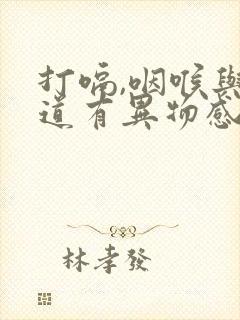 打嗝,咽喉與
道有異物感
林孝發